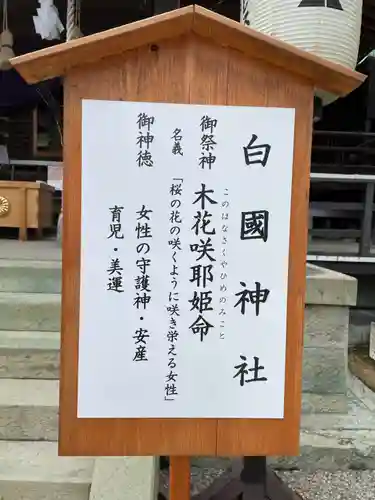 白國神社
御祭神 木花咲耶姫命
このはなさくやひめのみこと
名義 「桜の花の咲くように咲き栄える女性」
御神徳 女性の守護神・安産
育児・美運